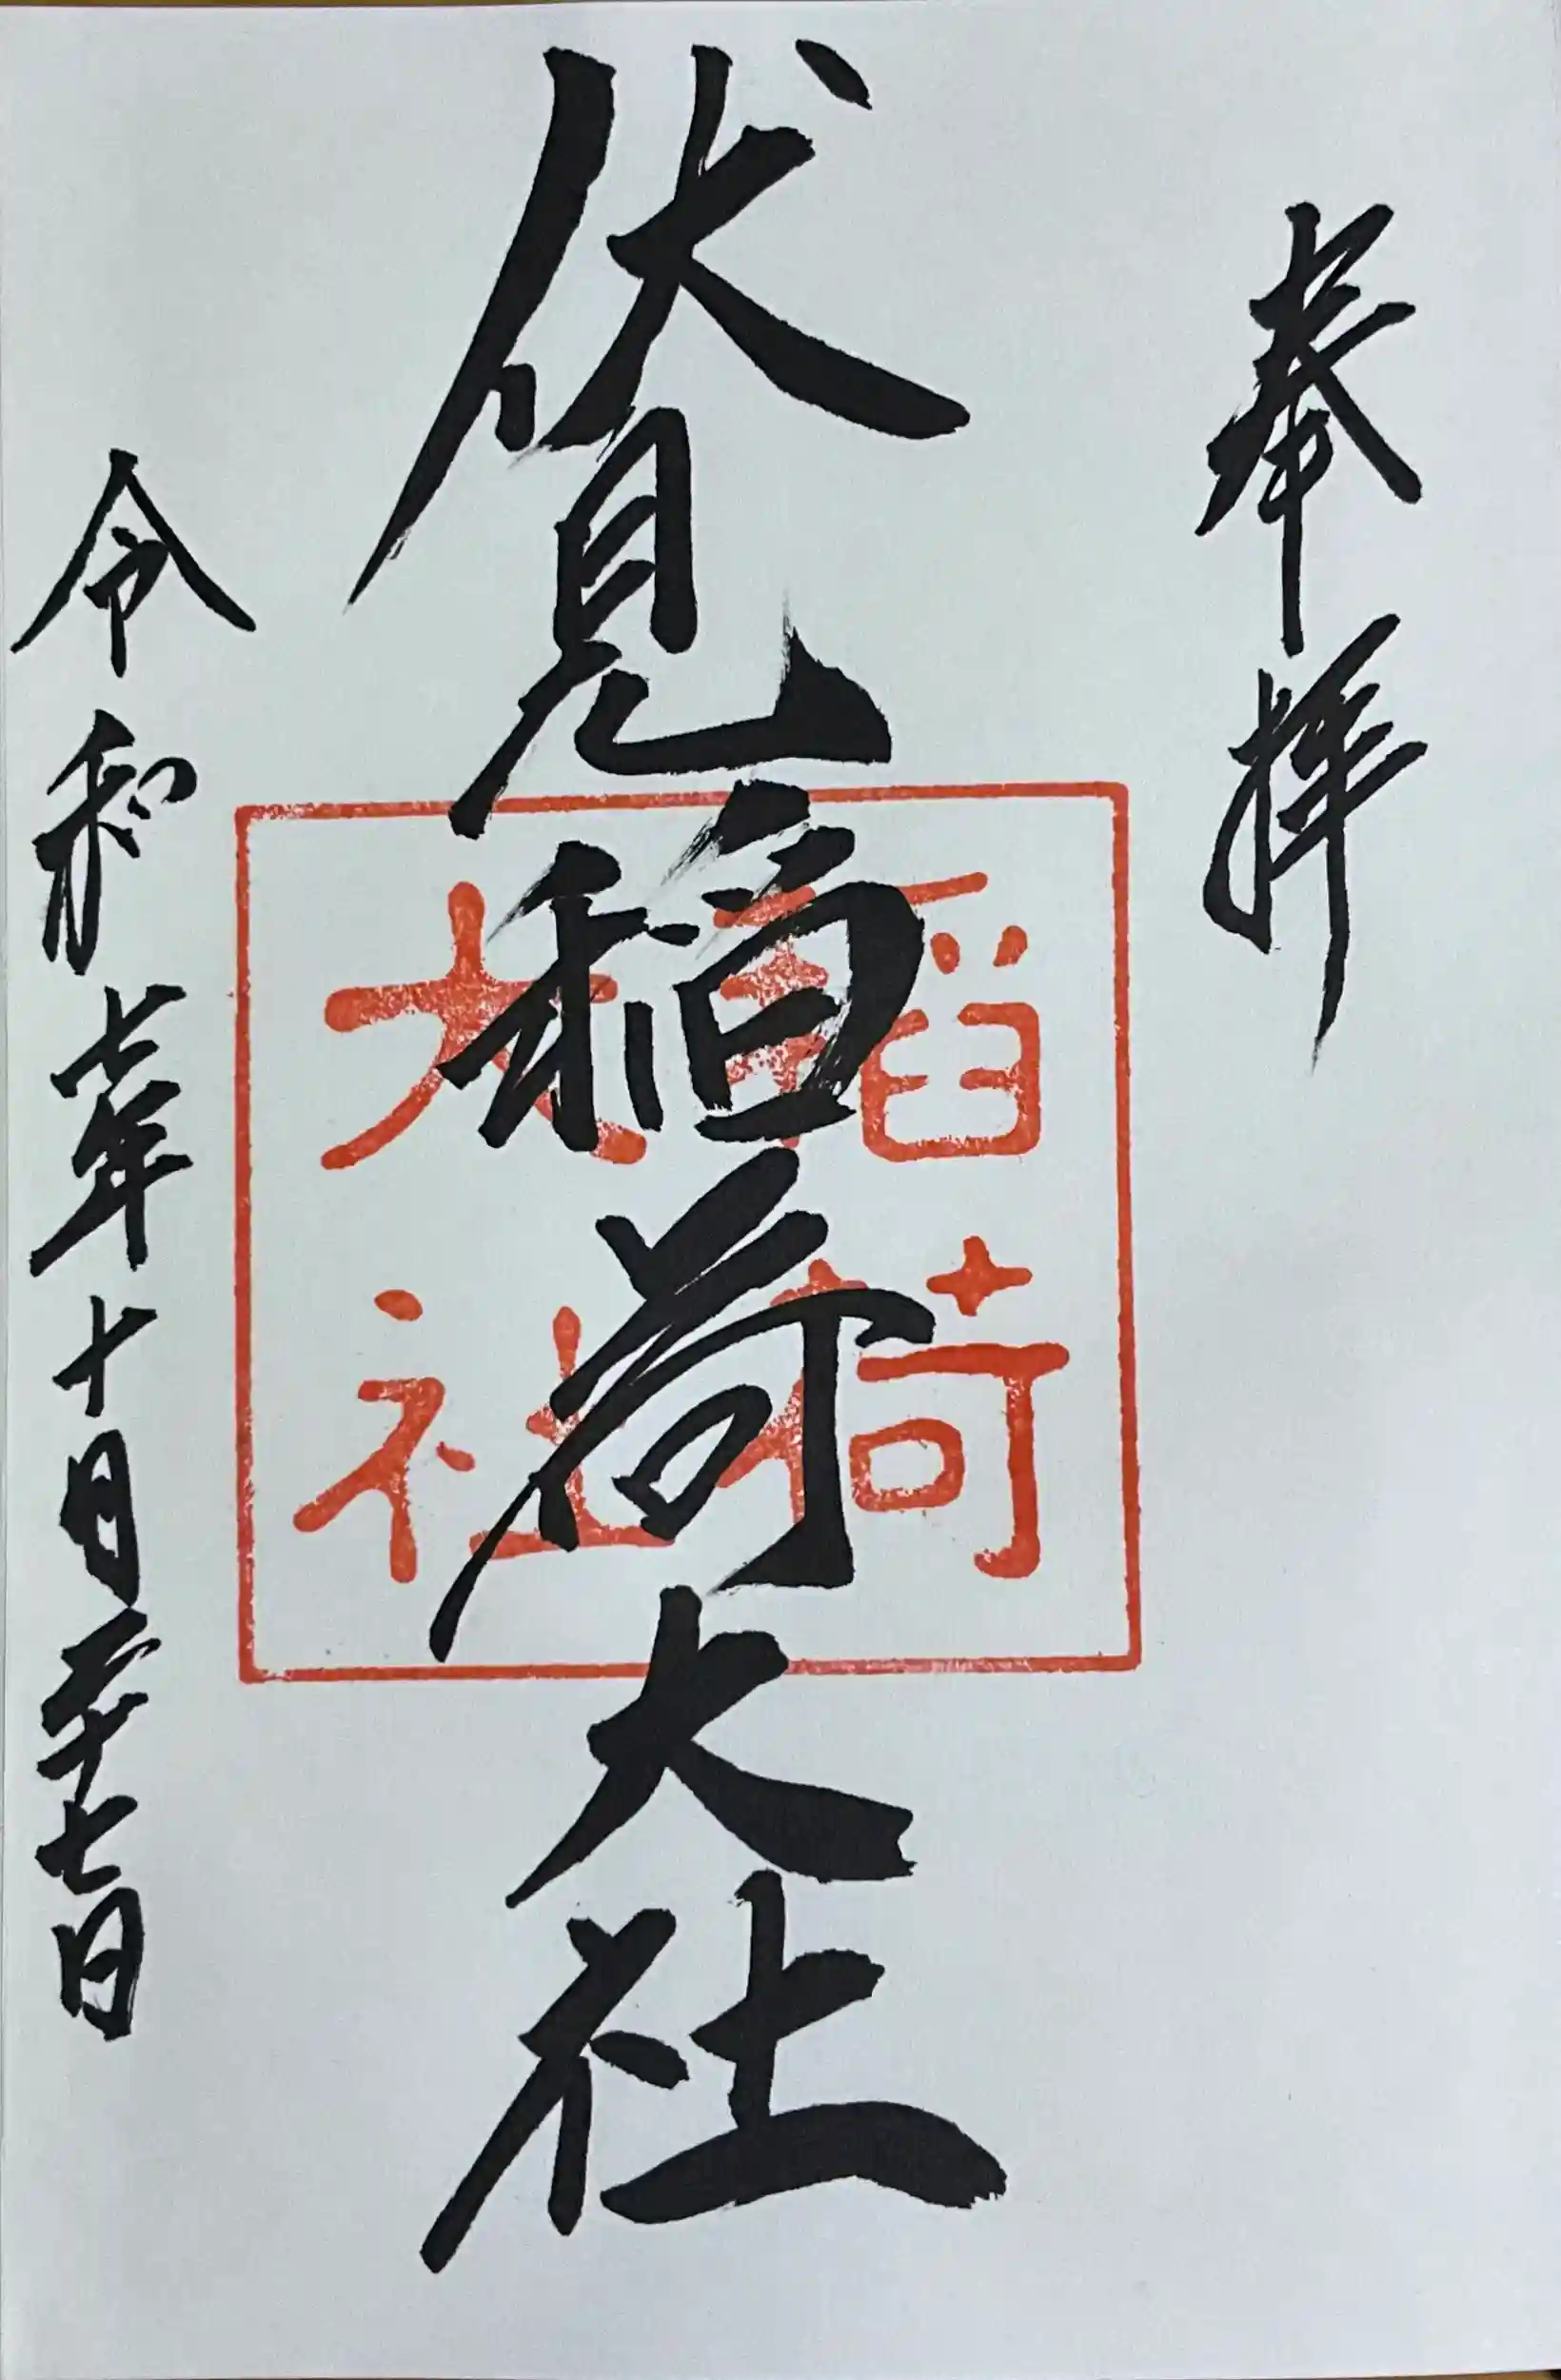 奉拝
伏見稲荷大社
稲荷
大社
令和七年十月二十七日